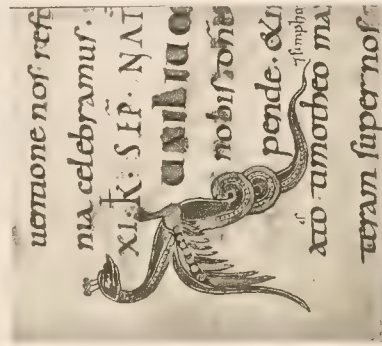 uentione nos resp
nia celebramus.
XI K. SEP. NAT
AUXILIU
nobis
pende. & in
7 simphor
ato timotheo ma
teram super nos